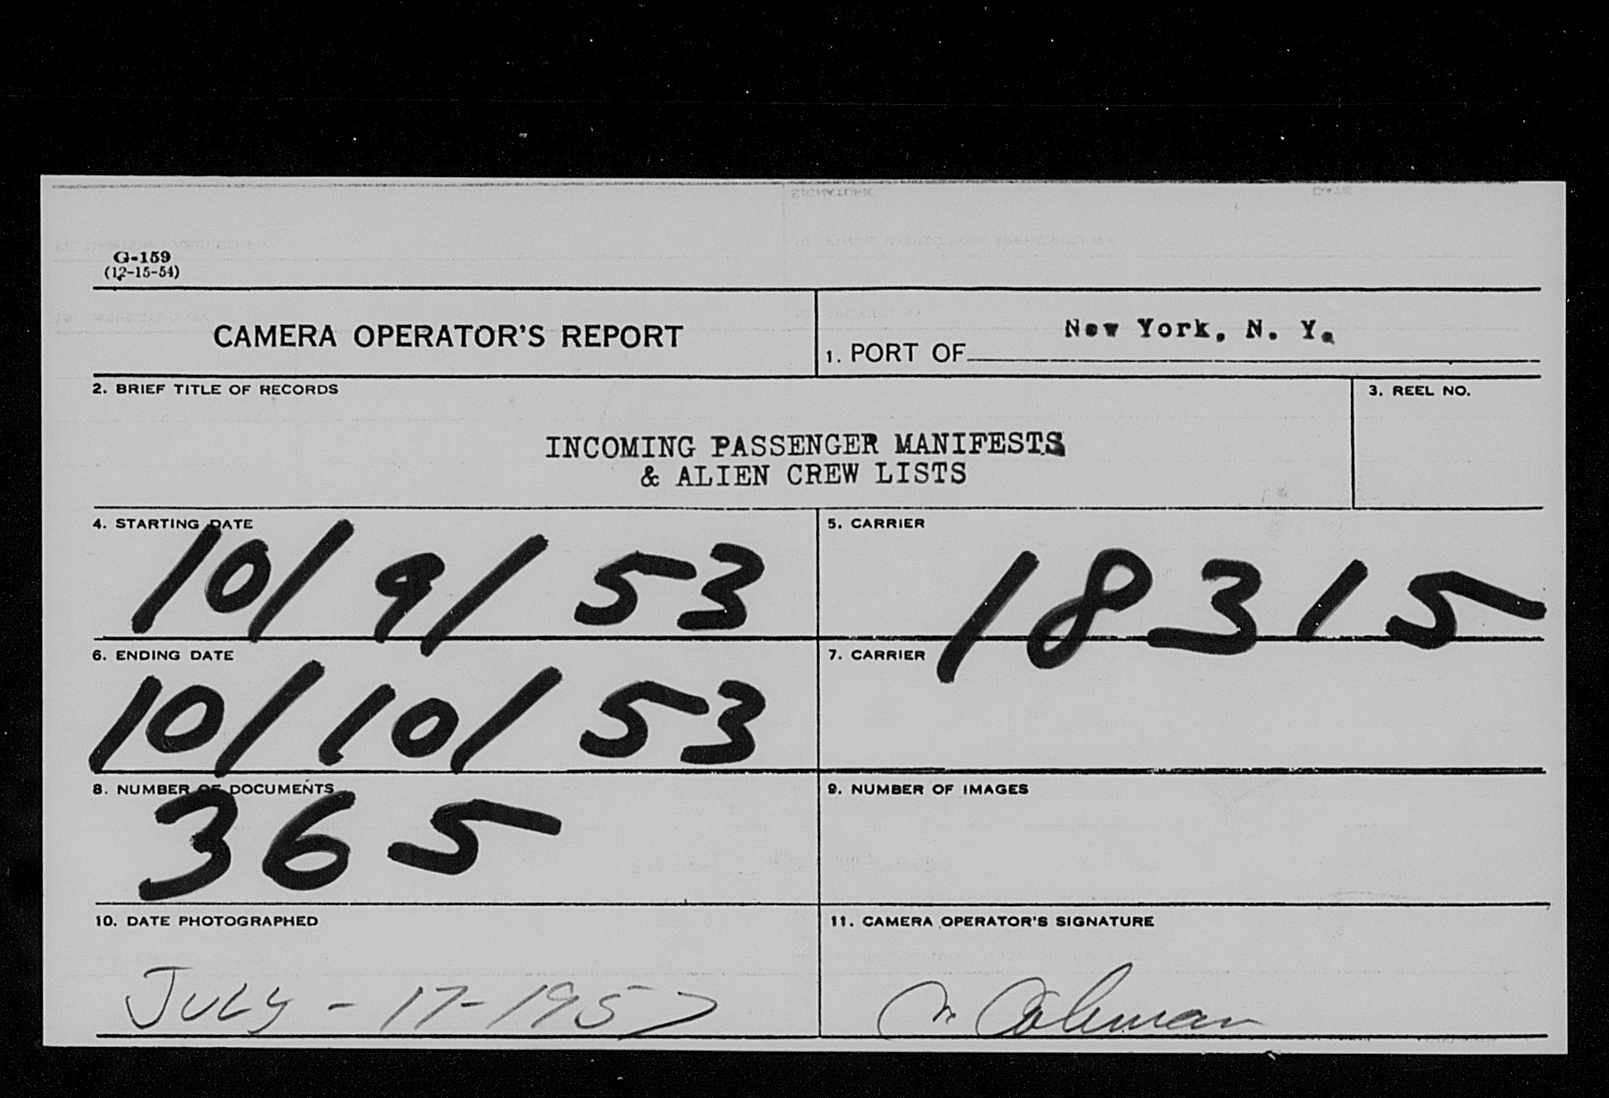 G-159
(12-15-54)
CAMERA OPERATOR'S REPORT
1. PORT OF New York, N. Y.
2. BRIEF TITLE OF RECORDS
INCOMING PASSENGER MANIFESTS
& ALIEN CREW LISTS
3. REEL NO.
4. STARTING DATE
10/9/53
5. CARRIER
18315
6. ENDING DATE
10/10/53
7. CARRIER
8. NUMBER OF DOCUMENTS
365
9. NUMBER OF IMAGES
10. DATE PHOTOGRAPHED
JULY - 17-1957
11. CAMERA OPERATOR'S SIGNATURE